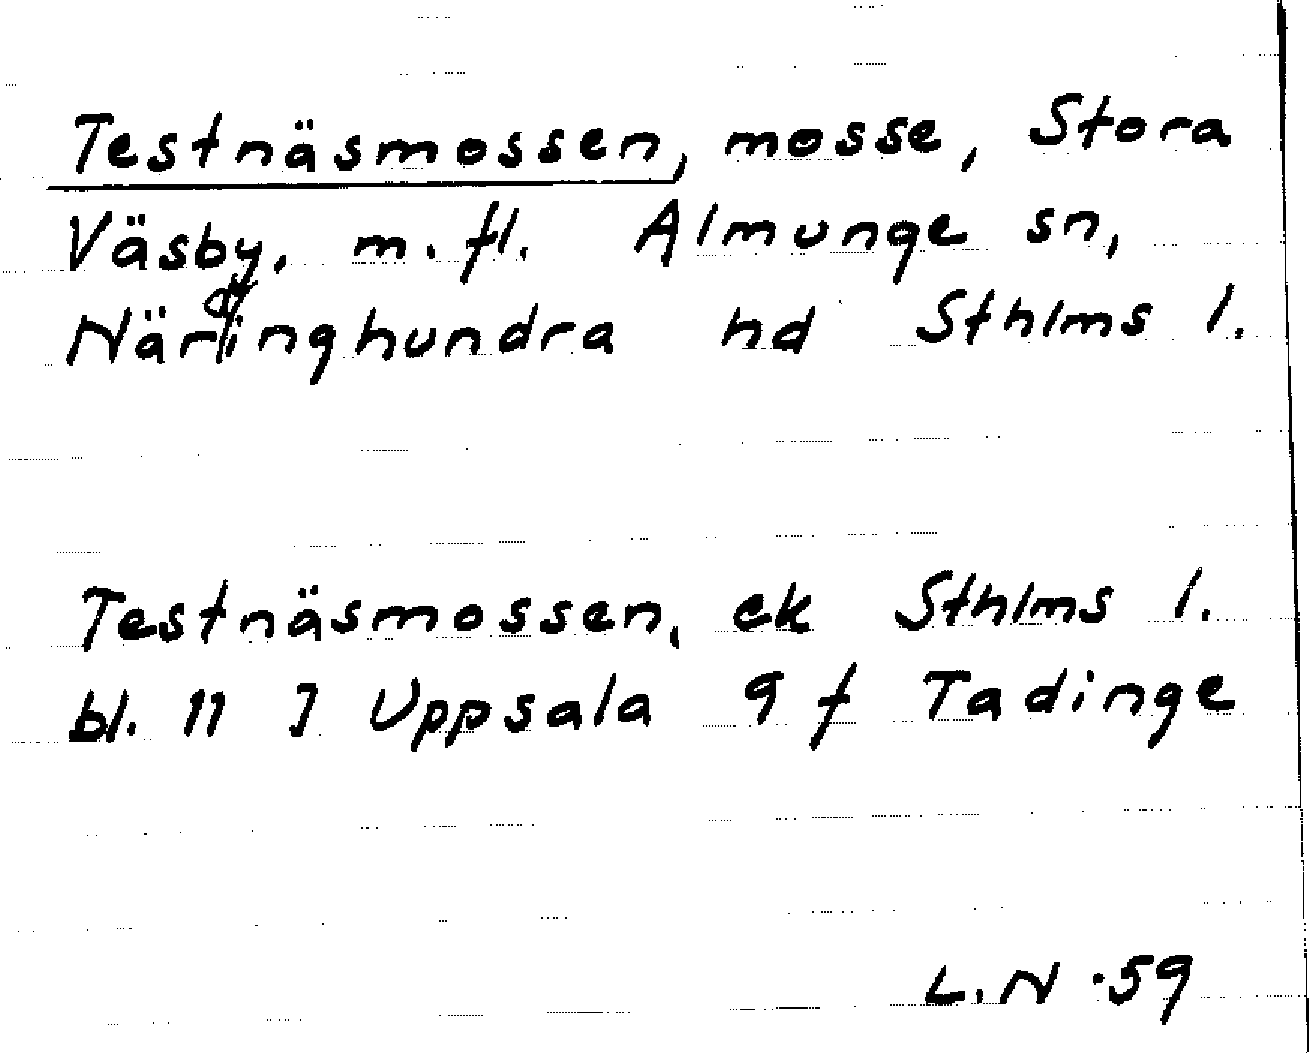 Testnäsmossen, mosse, Stora
Väsby, m. fl. Almunge sn,
Närdinghundra hd Sthlms l.
Testnäsmossen, ek Sthlms l.
bl. 11 I Uppsala 9 f Tadinge
L. N. 59